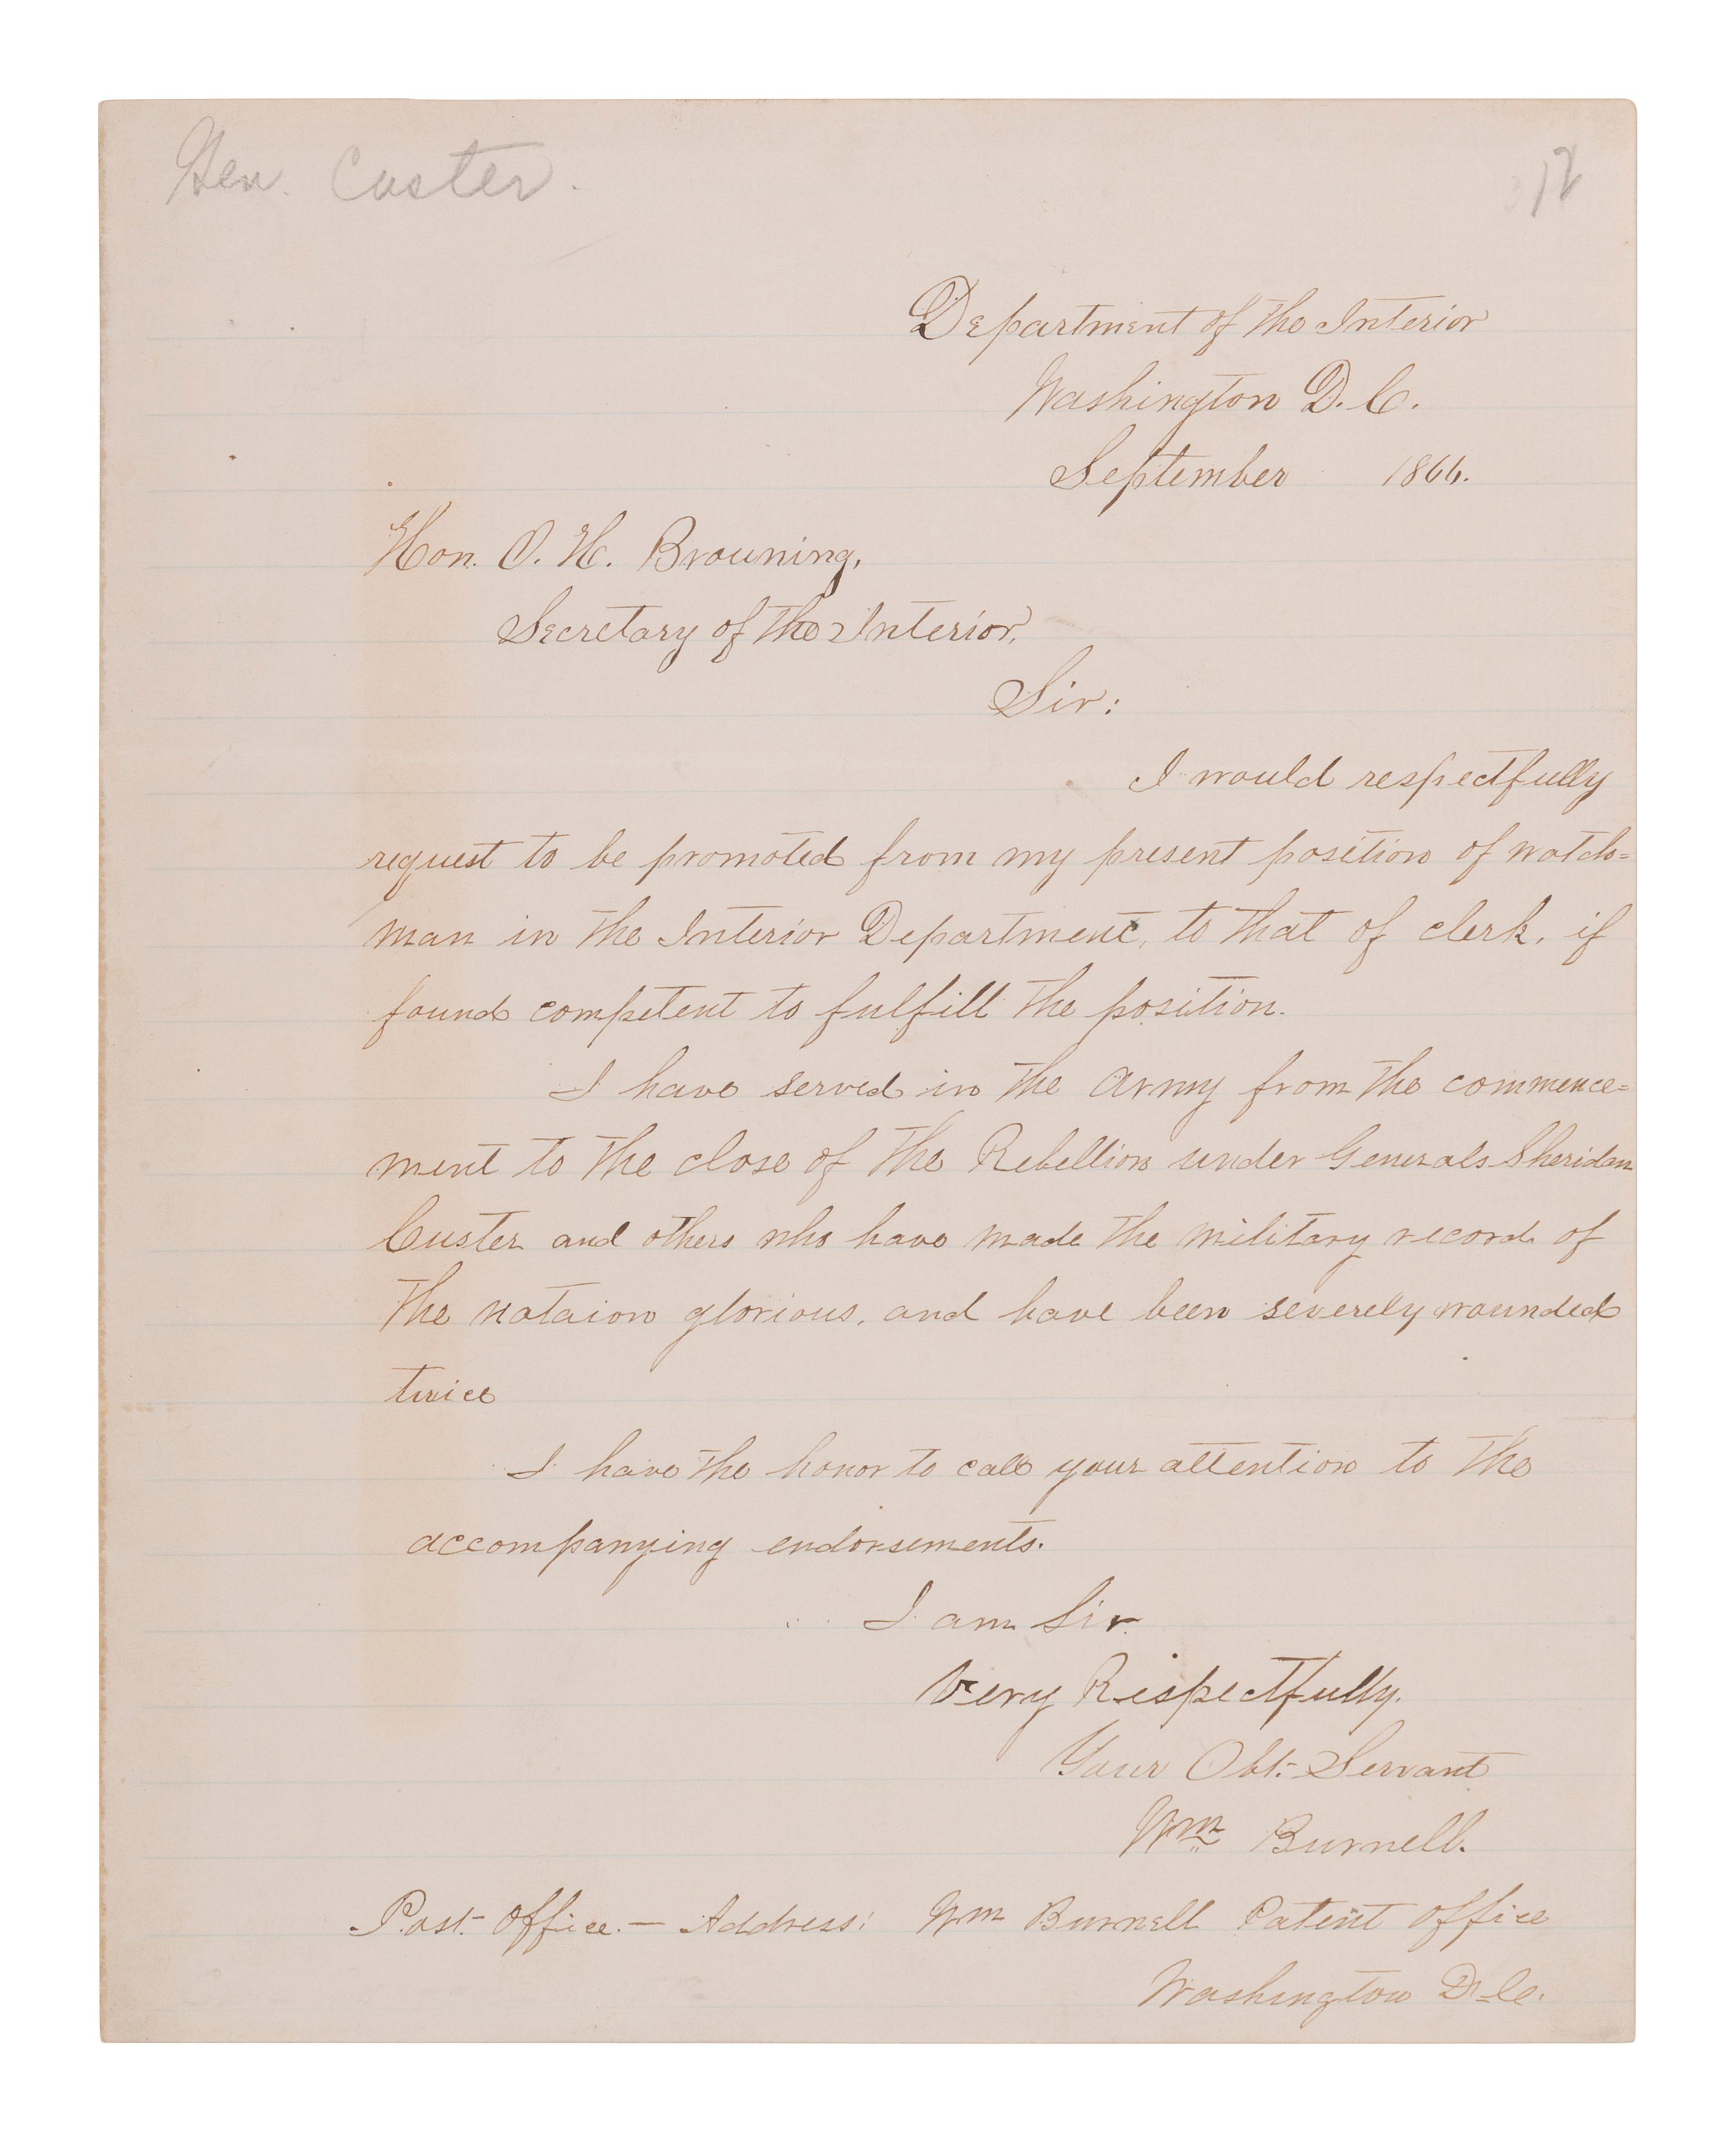 Gen. Custer.
12
Department of the Interior
Washington D. C.
September 1866.
Hon. O. H. Browning,
Secretary of the Interior,
Sir:
I would respectfully
request to be promoted from my present position of watch=
man in the Interior Department, to that of clerk, if
found competent to fulfill the position.
I have served in the Army from the commence=
ment to the close of the Rebellion under Generals Sheridan
Custer and others who have made the military record of
the nataion glorious, and have been severely wounded
twice
I have the honor to call your attention to the
accompanying endorsements.
I am Sir.
Very Respectfully.
Your Obt. Servant
Wm Burnell.
Post Office. — Address: Wm Burnell Patent Office
Washington D C.